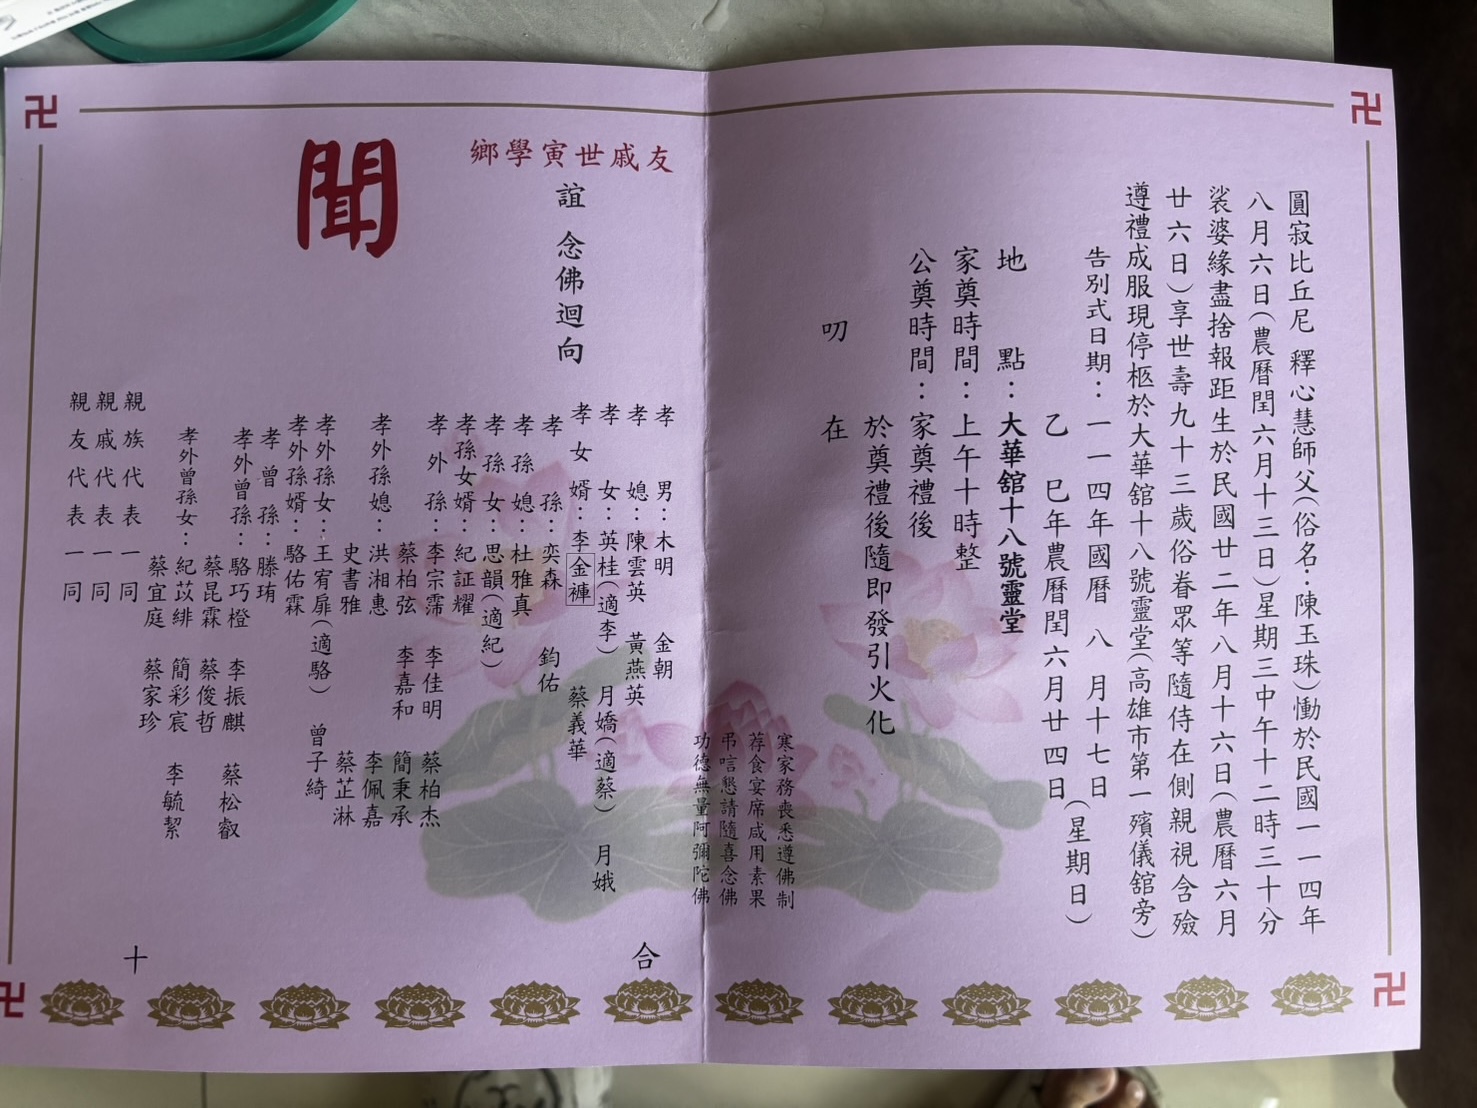 圓寂比丘尼 釋心慧師父(俗名:陳玉珠)慟於民國一一四年
八月六日(農曆閏六月十三日)星期三中午十二時三十分
裟婆緣盡捨報距生於民國廿二年八月十六日(農曆六月
廿六日)享世壽九十三歲俗眷眾等隨侍在側親視含殮
遵禮成服現停柩於大華舘十八號靈堂(高雄市第一殯儀舘旁)
告別式日期:一一四年國曆 八 月十七日(星期日)
乙 巳年農曆閏六月廿四日
地 點:大華舘十八號靈堂
家奠時間:上午十時整
公奠時間:家奠禮後
於奠禮後隨即發引火化
叨 在
寒家務喪悉遵佛制
荐食宴席咸用素果
弔唁懇請隨喜念佛
功德無量阿彌陀佛
鄉學寅世戚友
誼 念佛迴向
聞
孝 男:木明 金朝
孝 媳:陳雲英 黃燕英
孝 女:英桂(適李) 月嬌(適蔡) 月娥
孝女婿:李金褲 蔡義華
孝 孫:奕森 鈞佑
孝孫媳:杜雅真
孝孫女:思韻(適紀)
孝孫女婿:紀証耀
孝外孫:李宗霈 李佳明 蔡柏杰
蔡柏弦 李嘉和 簡秉承
孝外孫媳:洪湘惠 李佩嘉
史書雅 蔡芷淋
孝外孫女:王宥扉(適駱) 曾子綺
孝外孫婿:駱佑霖
孝曾孫:滕琦
孝外曾孫:駱巧橙 李振麒 蔡松叡
蔡昆霖 蔡俊哲
孝外曾孫女:紀苡緋 簡彩宸 李毓絜
蔡宜庭 蔡家珍
親族代表一同
親戚代表一同
親友代表一同
合 十